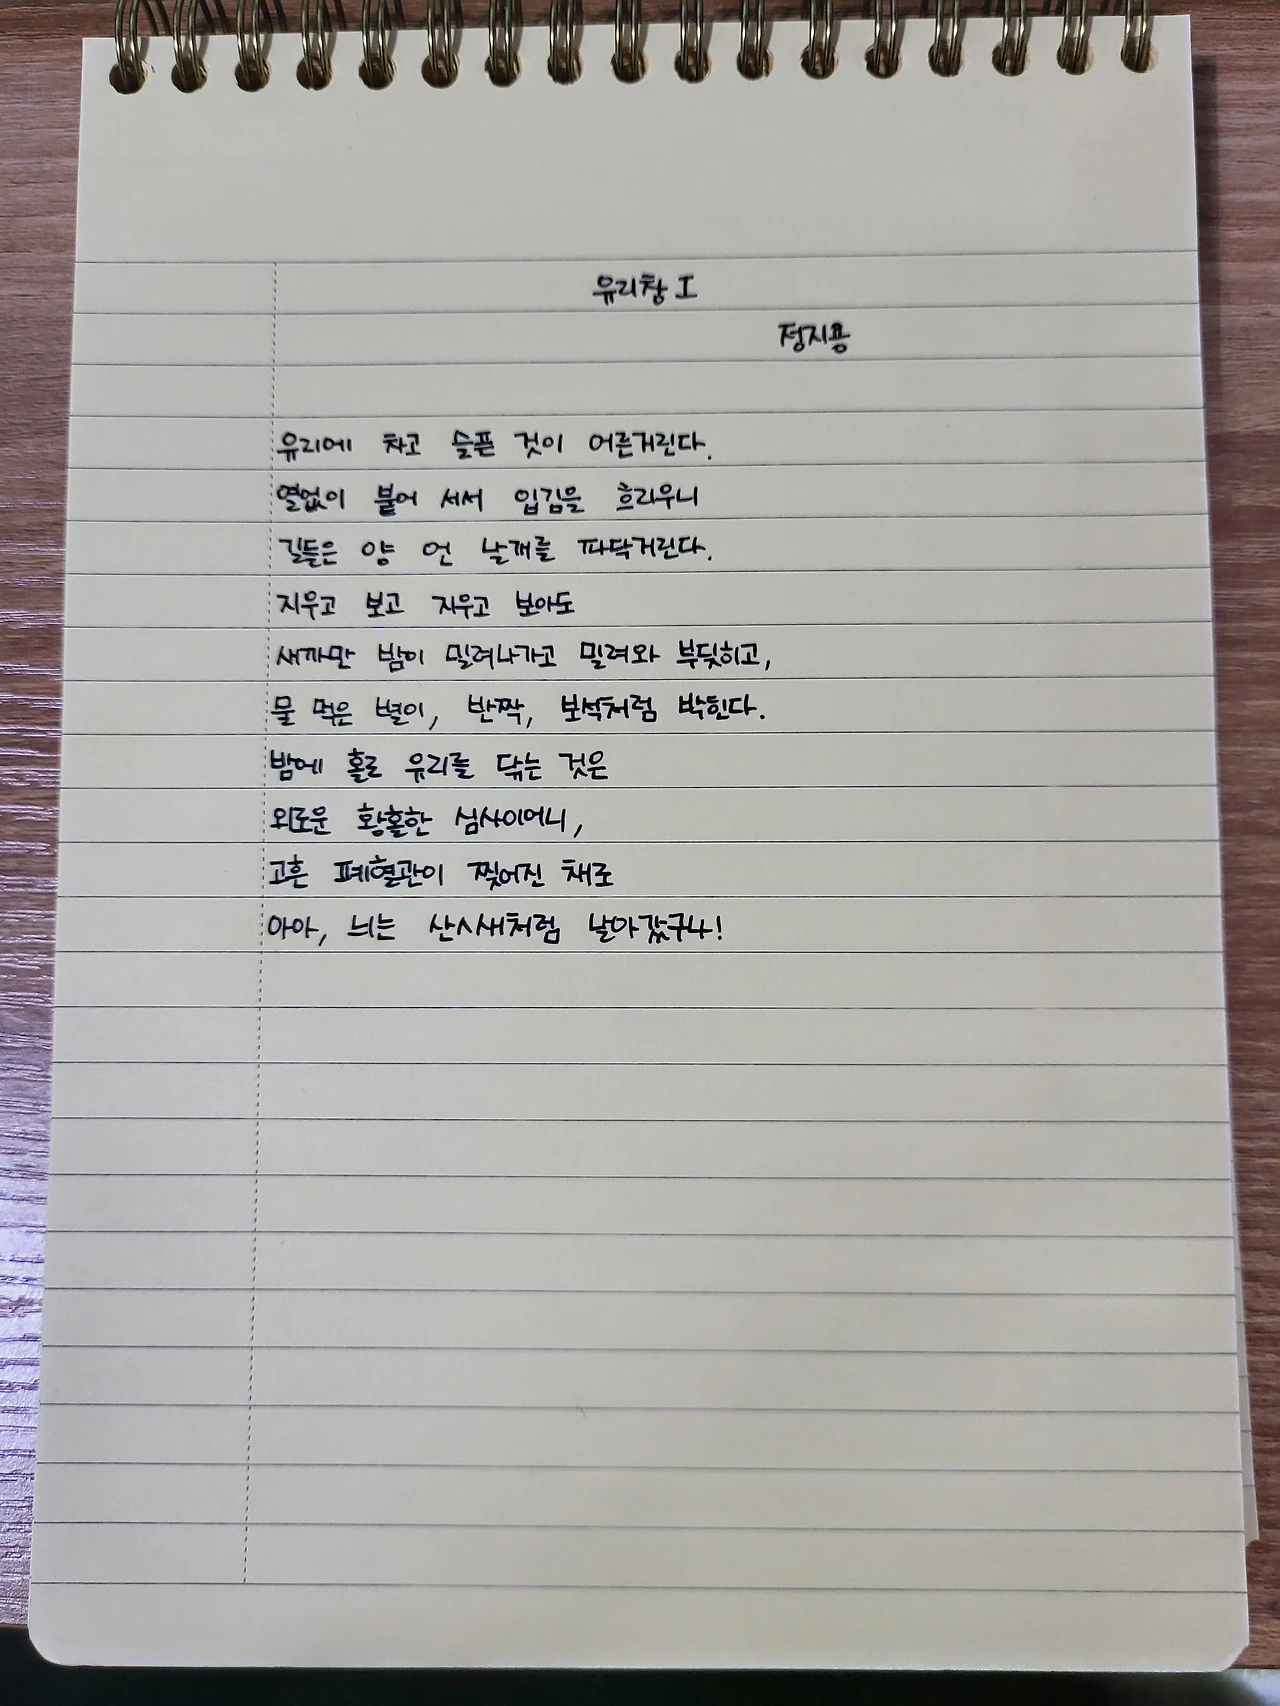 유리창 I
정지용
유리에 차고 슬픈 것이 어른거린다.
열없이 붙어 서서 입김을 흐리우니
길들은 양 언 날개를 파닥거린다.
지우고 보고 지우고 보아도
새까만 밤이 밀려나가고 밀려와 부딪히고,
물 먹은 별이, 반짝, 보석처럼 박힌다.
밤에 홀로 유리를 닦는 것은
외로운 황홀한 심사이어니,
고흔 폐혈관이 찢어진 채로
아아, 늬는 산ㅅ새처럼 날아갔구나!